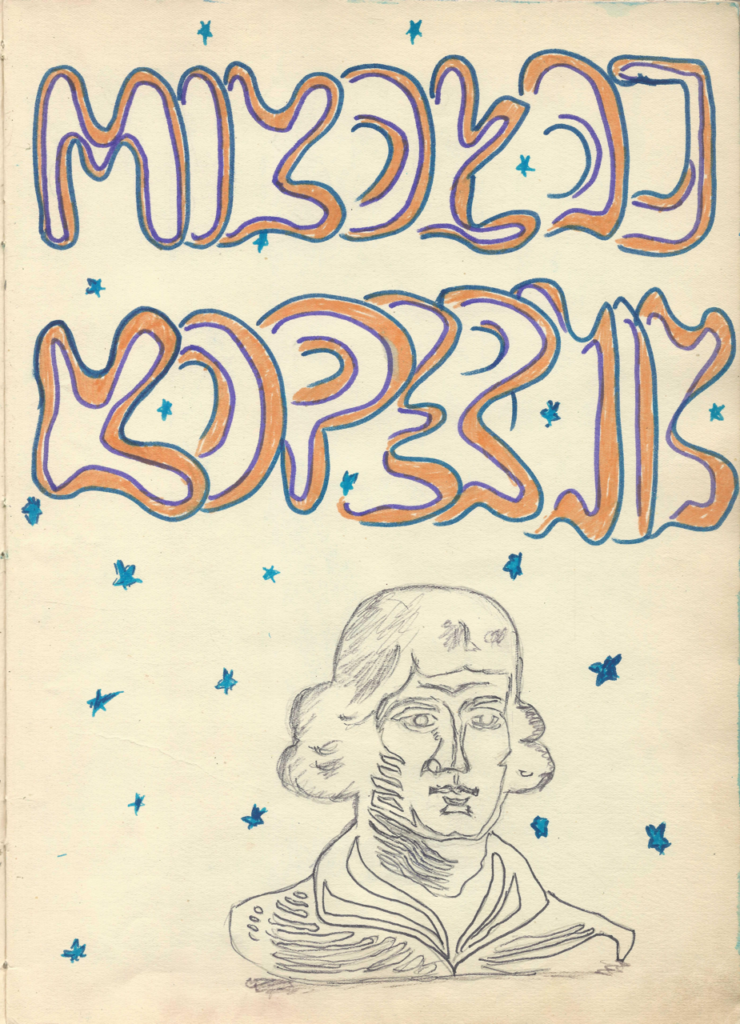 MIKOŁAJ
KOPERNIK